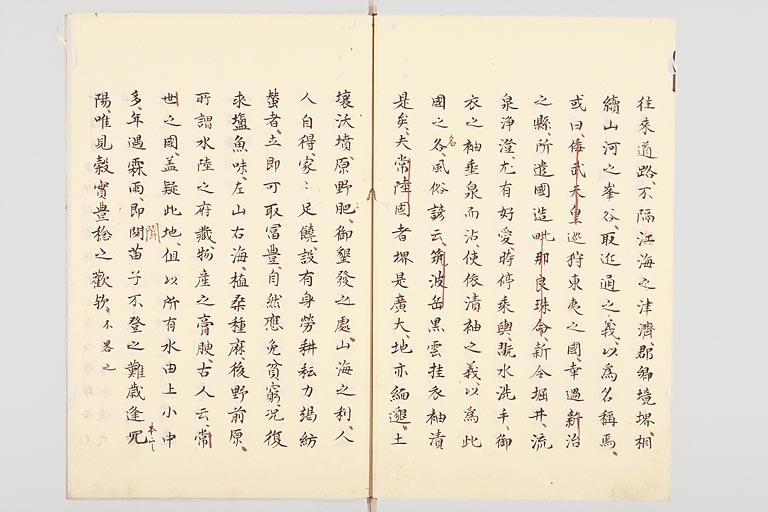 往来道路、不隔江海之津濟、郡郷境堺、相
續山河之峯谷、取近通之義、以為名稱焉、
或曰、倭武天皇巡狩東夷之國、幸過新治
之縣、所遣國造毗那良珠命、新令堀井、流
泉浄澄、尤有好愛、時停乘輿、翫水洗手、御
衣之袖垂泉而沾、便依漬袖之義、以為此
國之各風俗諺云、筑波岳黒雲挂衣袖漬
名
是矣、夫常陸國者堺是廣大、地亦緬邈、土
壤沃墳、原野肥、御墾發之處、山海之利、人
人自得、家〻足饒、設有身勞耕耘力竭紡
蚕者、立即可取冨豊、自然應免貧窮、况復
求塩魚味、左山右海、植桒種麻、後野前原、
所謂水陸之府藏、物産之膏腴、古人云、常
世之國、盖疑此地、但以所有水田上小中
多、年遇霖雨、即聞苗子不登之難、歳逢冗
陽、唯見穀實豊稔之歡欤、不畧之